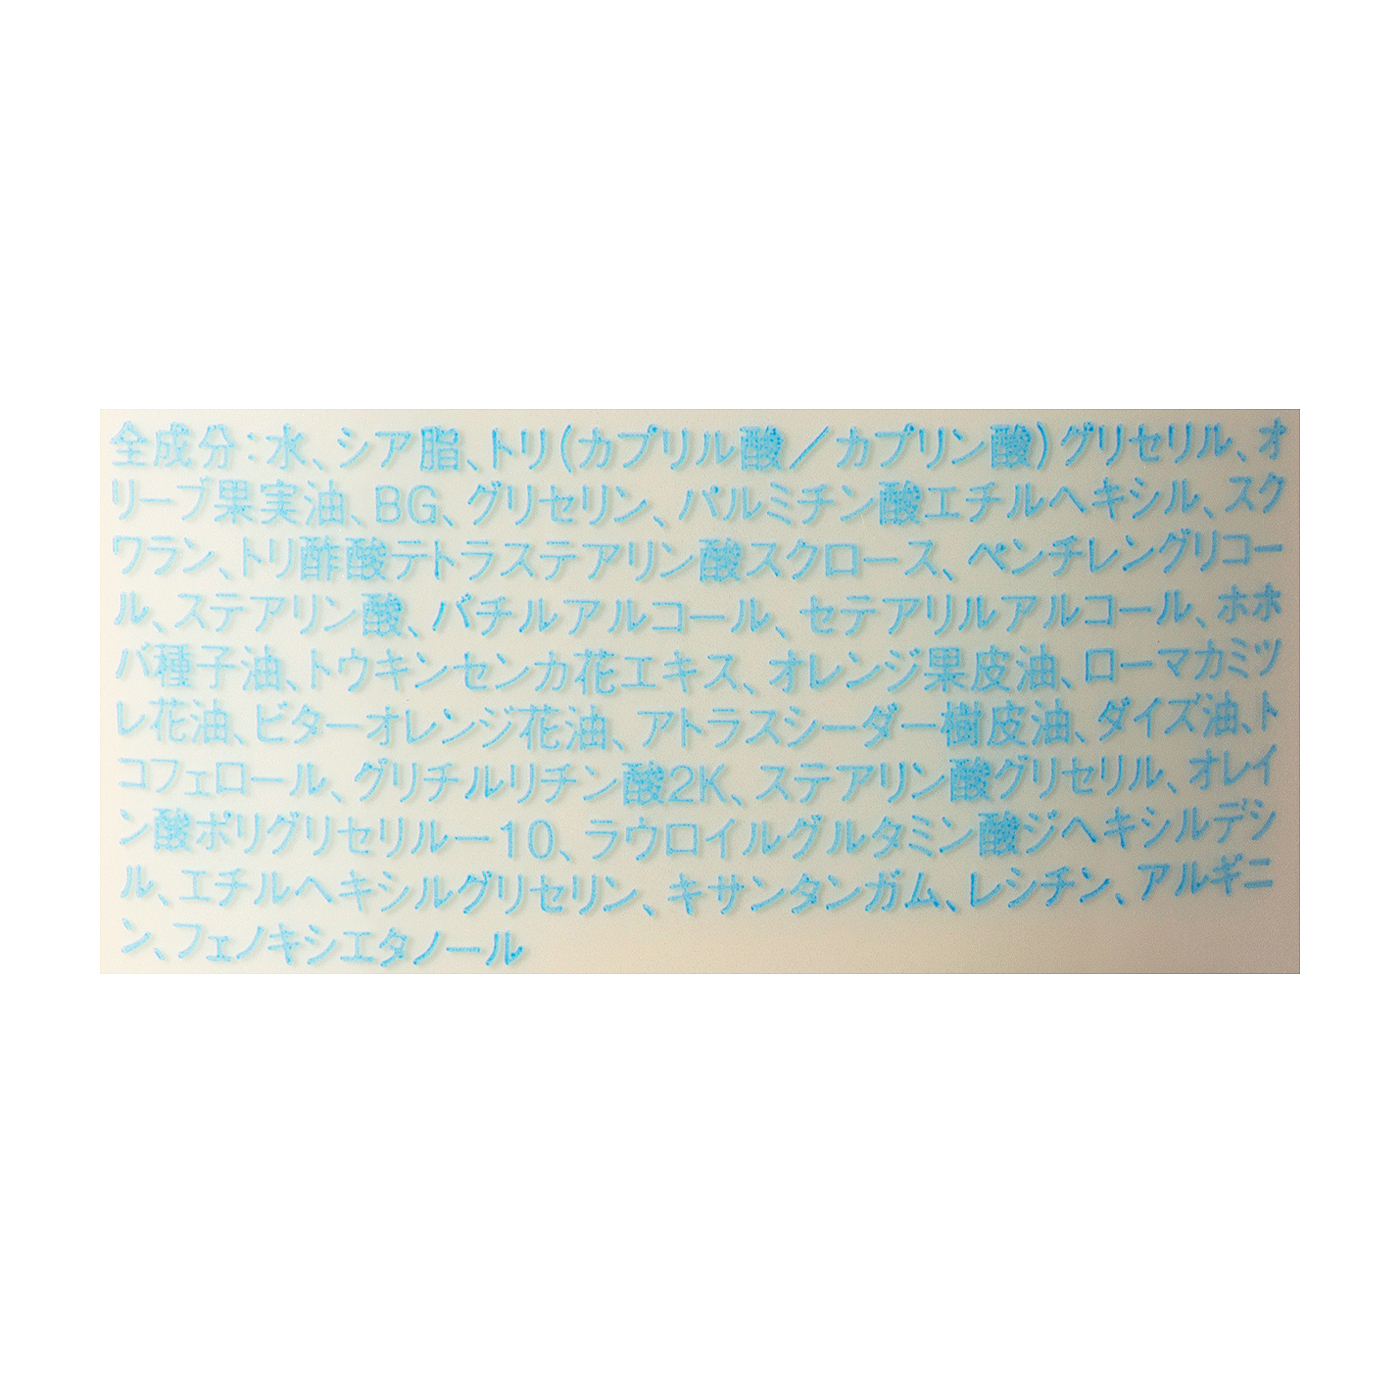 全成分：水、シア脂、トリ(カプリル酸／カプリン酸)グリセリル、オ
リーブ果実油、BG、グリセリン、パルミチン酸エチルヘキシル、スク
ワラン、トリ酢酸テトラステアリン酸スクロース、ペンチレングリコー
ル、ステアリン酸、バチルアルコール、セテアリルアルコール、ホホ
バ種子油、トウキンセンカ花エキス、オレンジ果皮油、ローマカミツ
レ花油、ビターオレンジ花油、アトラスシーダー樹皮油、ダイズ油、ト
コフェロール、グリチルリチン酸2K、ステアリン酸グリセリル、オレイ
ン酸ポリグリセリル－10、ラウロイルグルタミン酸ジヘキシルデシ
ル、エチルヘキシルグリセリン、キサンタンガム、レシチン、アルギニ
ン、フェノキシエタノール